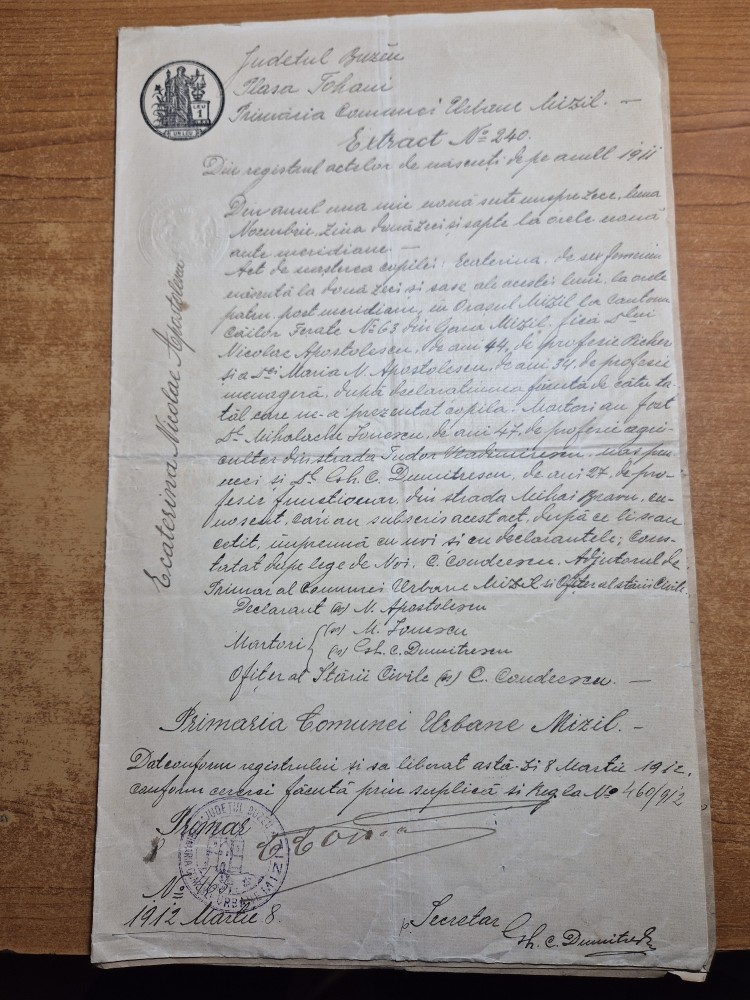 Judetul Buzĕu
Plasa Tohani
Primăria Comunei Urbane Mizil. —
Extract Nº 240.
Din registrul actelor de născuți de pe anul 1911
Din anul una mie nouă sute unsprezece, luna
Noembrie, ziua două zeci si sapte la orele nouă
ante meridiane. —
Act de nasterea copilei: Ecaterina, de sex femenin
născută la două zeci si sase ale acestei luni, la orele
patru post meridiane, in Orasul Mizil la Cantonu
Căilor Ferate Nº 63 din Gara Mizil, fiică D-lui
Nicolae Apostolescu, de ani 44, de profesie Picher
si a D-ei Maria N. Apostolescu, de ani 34, de profesie
menageră, după declaratiunea făcută de către ta-
tăl care ni-a prezentat copila. Martori au fost
D. Mihalache Ionescu, de ani 47, de profesie agri-
cultor din strada Tudor Vladimirescu,
si D. Gh. C. Dumitrescu, de ani 27, de pro-
fesie functionar, din strada Mihai Bravu, cu-
noscut, cari au subscris acest act, după ce li s-au
cetit, impreună cu noi si cu declarantele; Cons-
tatat dupe lege de Noi, C. Condeescu, Adjutorul de
Primar al Comunei Urbane Mizil si Ofiter al stării Civile.
Declarant (ss) N. Apostolescu
Martori (ss) M. Ionescu
(ss) Gh. C. Dumitrescu
Ofiter al Stării Civile (ss) C. Condeescu. —
Primaria Comunei Urbane Mizil. —
Dat conform registrului si sa liberat astă-zi 8 Martie 1912,
conform cererei făcută prin suplică si Reg la Nº 460/912
Primar
JUDETUL BUZEU
MIZIL
1912 Martie 8.
p. Secretar
Gh. C. Dumitrescu
Ecaterina Nicolae Apostolescu
LEU 1
UN LEU